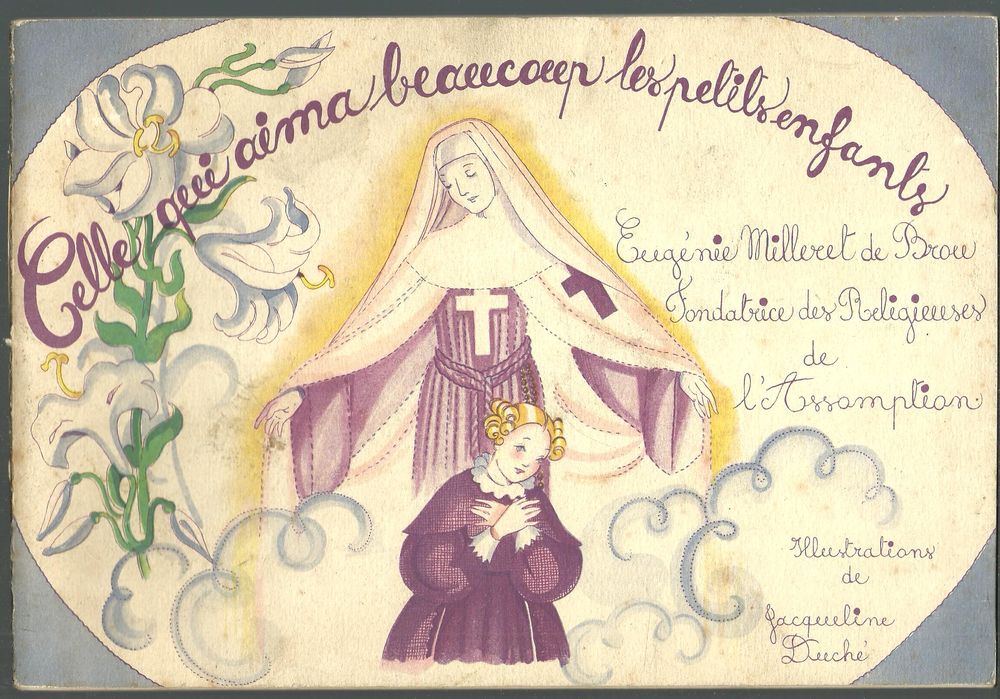 Celle qui aima beaucoup les petits enfants
Eugénie Milleret de Brou
Fondatrice des Religieuses
de
l'Assomption
Illustrations
de
Jacqueline
Duché